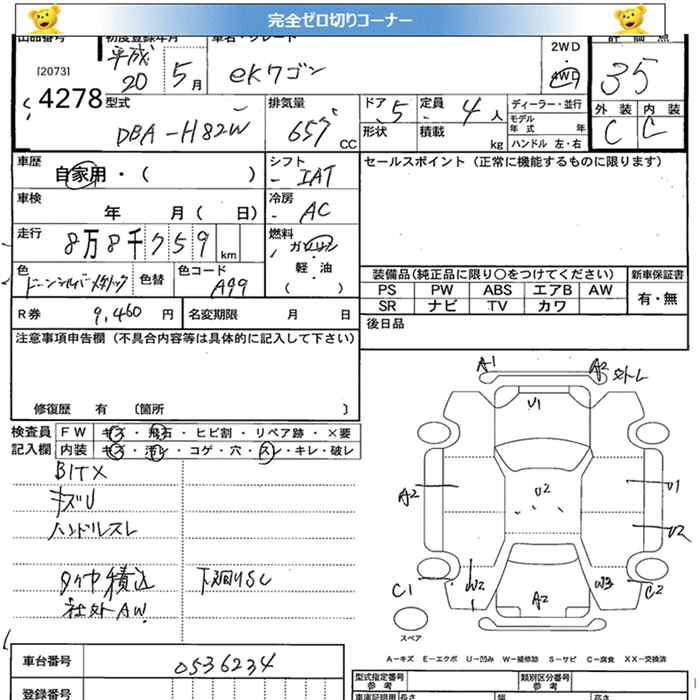 完全ゼロ切りコーナー
出品番号 初度登録年月 車名・グレード 2WD 評価点
[2073] 平成 20 5月 ekワゴン 4WD 35
4278 型式 DBA-H82W 排気量 657 CC ドア 5 定員 4人 ディーラー・並行 外装 内装
形状 積載 kg モデル年式 年 C C
ハンドル 左・右
車歴 自家用・( ) シフト IAT セールスポイント(正常に機能するものに限ります)
車検 年 月( 日) 冷房 AC
走行 8万8千759km 燃料 ガソリン
軽油
( )
色 色替 色コード A99 装備品(純正品に限り○をつけてください) 新車保証書
PS PW ABS エアB AW 有・無
SR ナビ TV カワ
R券 9,460円 名変期限 月 日 後日品
注意事項申告欄(不具合内容等は具体的に記入して下さい)
修復歴 有 〔箇所 〕
検査員 FW キズ・飛石・ヒビ割・リペア跡・×要
記入欄 内装 キズ・汚レ・コゲ・穴・スレ・キレ・破レ
A1 A2 外トレ
U1
BITX
キズU
ハンドルスレ
A2 U2 U1
U2
タイヤ積込 下廻りSC
社外AW
C1 W2 A2 W3 C2
スペア
A-キズ E-エクボ U-凹み W-補修跡 S-サビ C-腐食 XX-交換済
車台番号 0536234 型式指定番号 参考 類別区分番号 参考
登録番号 車庫証明用 長さ 幅 高さ